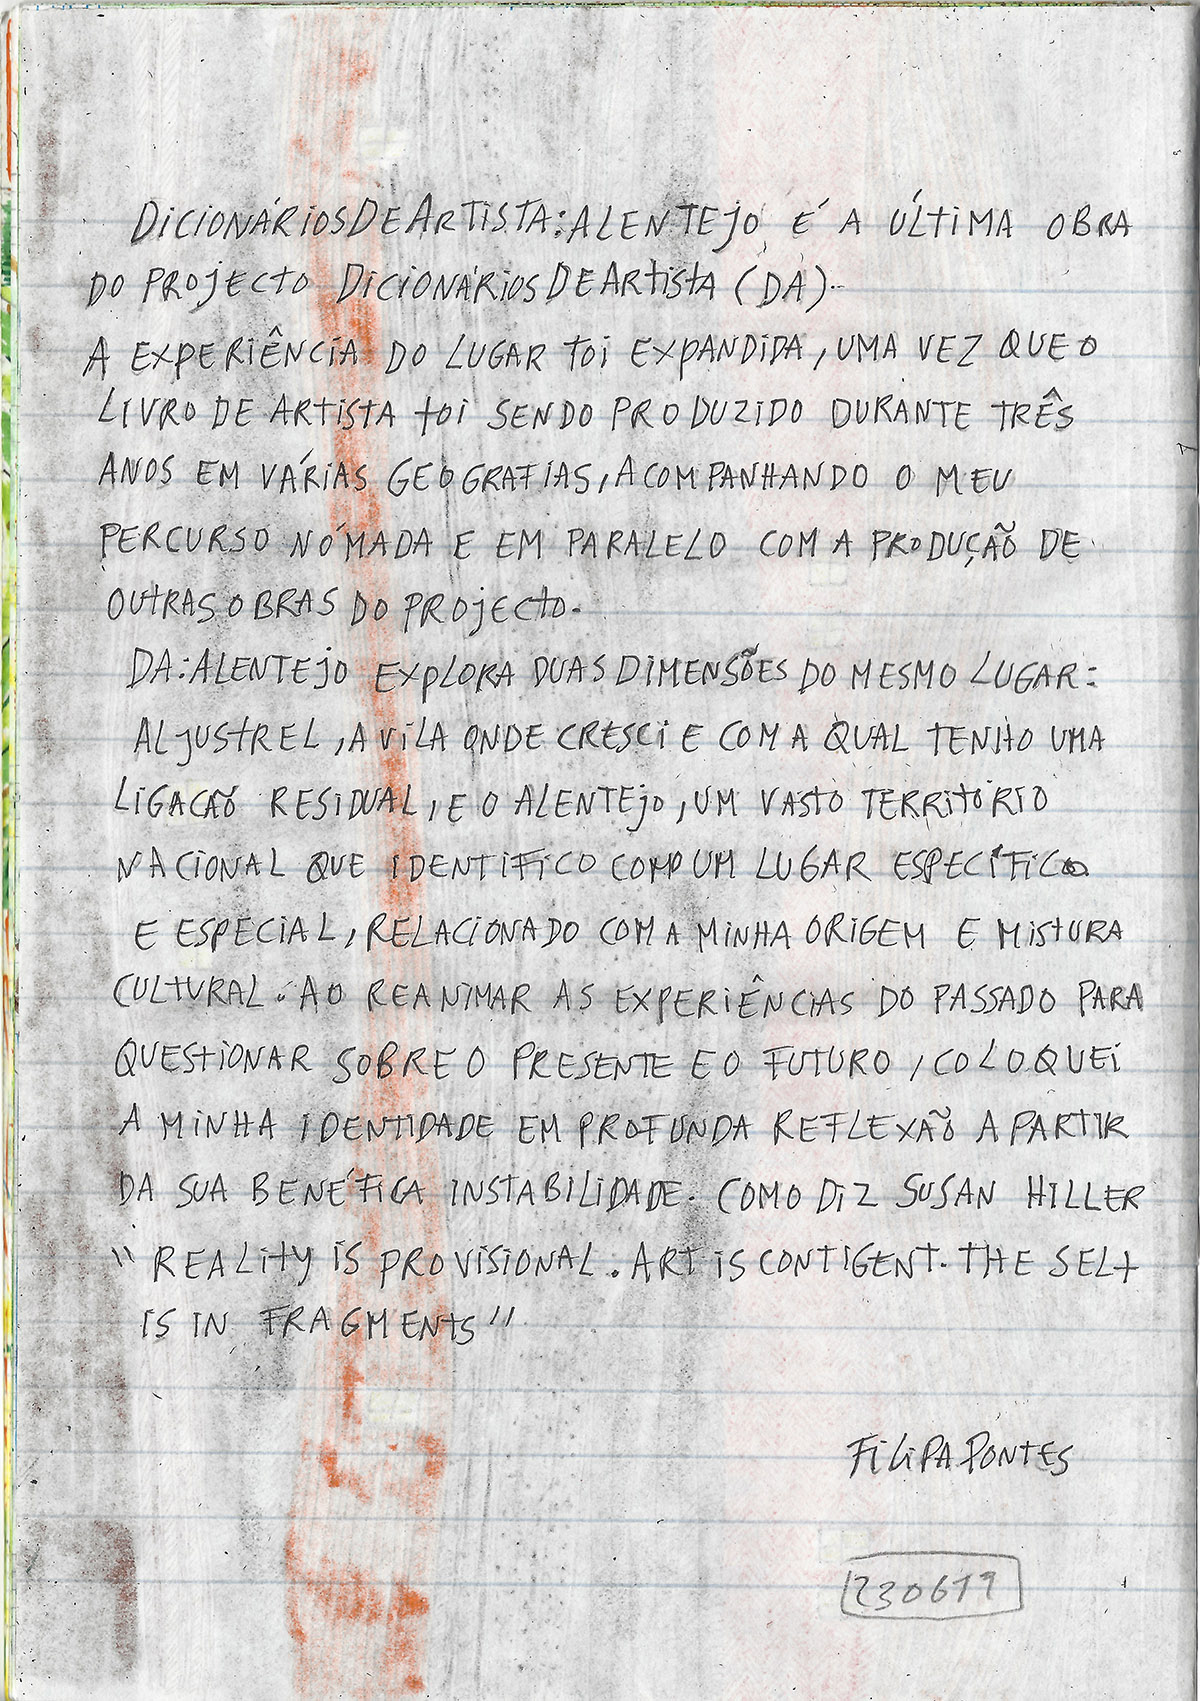 DICIONÁRIOSDEARTISTA:ALENTEJO É A ÚLTIMA OBRA
DO PROJECTO DICIONÁRIOSDEARTISTA (DA).
A EXPERIÊNCIA DO LUGAR FOI EXPANDIDA, UMA VEZ QUE O
LIVRO DE ARTISTA FOI SENDO PRODUZIDO DURANTE TRÊS
ANOS EM VÁRIAS GEOGRAFIAS, ACOMPANHANDO O MEU
PERCURSO NÓMADA E EM PARALELO COM A PRODUÇÃO DE
OUTRAS OBRAS DO PROJECTO.
DA:ALENTEJO EXPLORA DUAS DIMENSÕES DO MESMO LUGAR:
ALJUSTREL, A VILA ONDE CRESCI E COM A QUAL TENHO UMA
LIGAÇÃO RESIDUAL, E O ALENTEJO, UM VASTO TERRITÓRIO
NACIONAL QUE IDENTIFICO COMO UM LUGAR ESPECÍFICO
E ESPECIAL, RELACIONADO COM A MINHA ORIGEM E MISTURA
CULTURAL. AO REANIMAR AS EXPERIÊNCIAS DO PASSADO PARA
QUESTIONAR SOBRE O PRESENTE E O FUTURO, COLOQUEI
A MINHA IDENTIDADE EM PROFUNDA REFLEXÃO A PARTIR
DA SUA BENÉFICA INSTABILIDADE. COMO DIZ SUSAN HILLER
"REALITY IS PROVISIONAL. ART IS CONTIGENT. THE SELF
IS IN FRAGMENTS"
FILIPA PONTES
230619